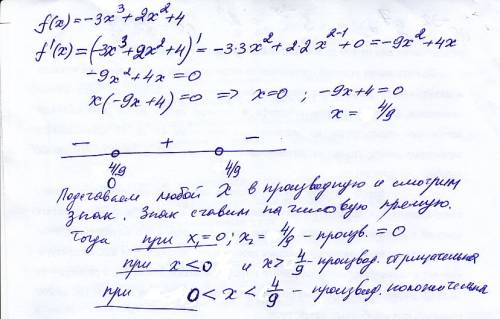 f(x) = -3x³+2x²+4
f'(x) = (-3x³+2x²+4)' = -3·3x²+2·2x²⁻¹+0 = -9x²+4x
-9x²+4x = 0
x(-9x+4) = 0 => x=0 ; -9x+4=0
x = 4/9
− + −
4/9 4/9
0
Подставляем любой x в производную и смотрим
знак. Знак ставим на числовую прямую.
Тогда при x₁=0; x₂= 4/9 - произв. = 0
при x<0 и x> 4/9 - производ. отрицательна
при 0<x< 4/9 - производ. положительна